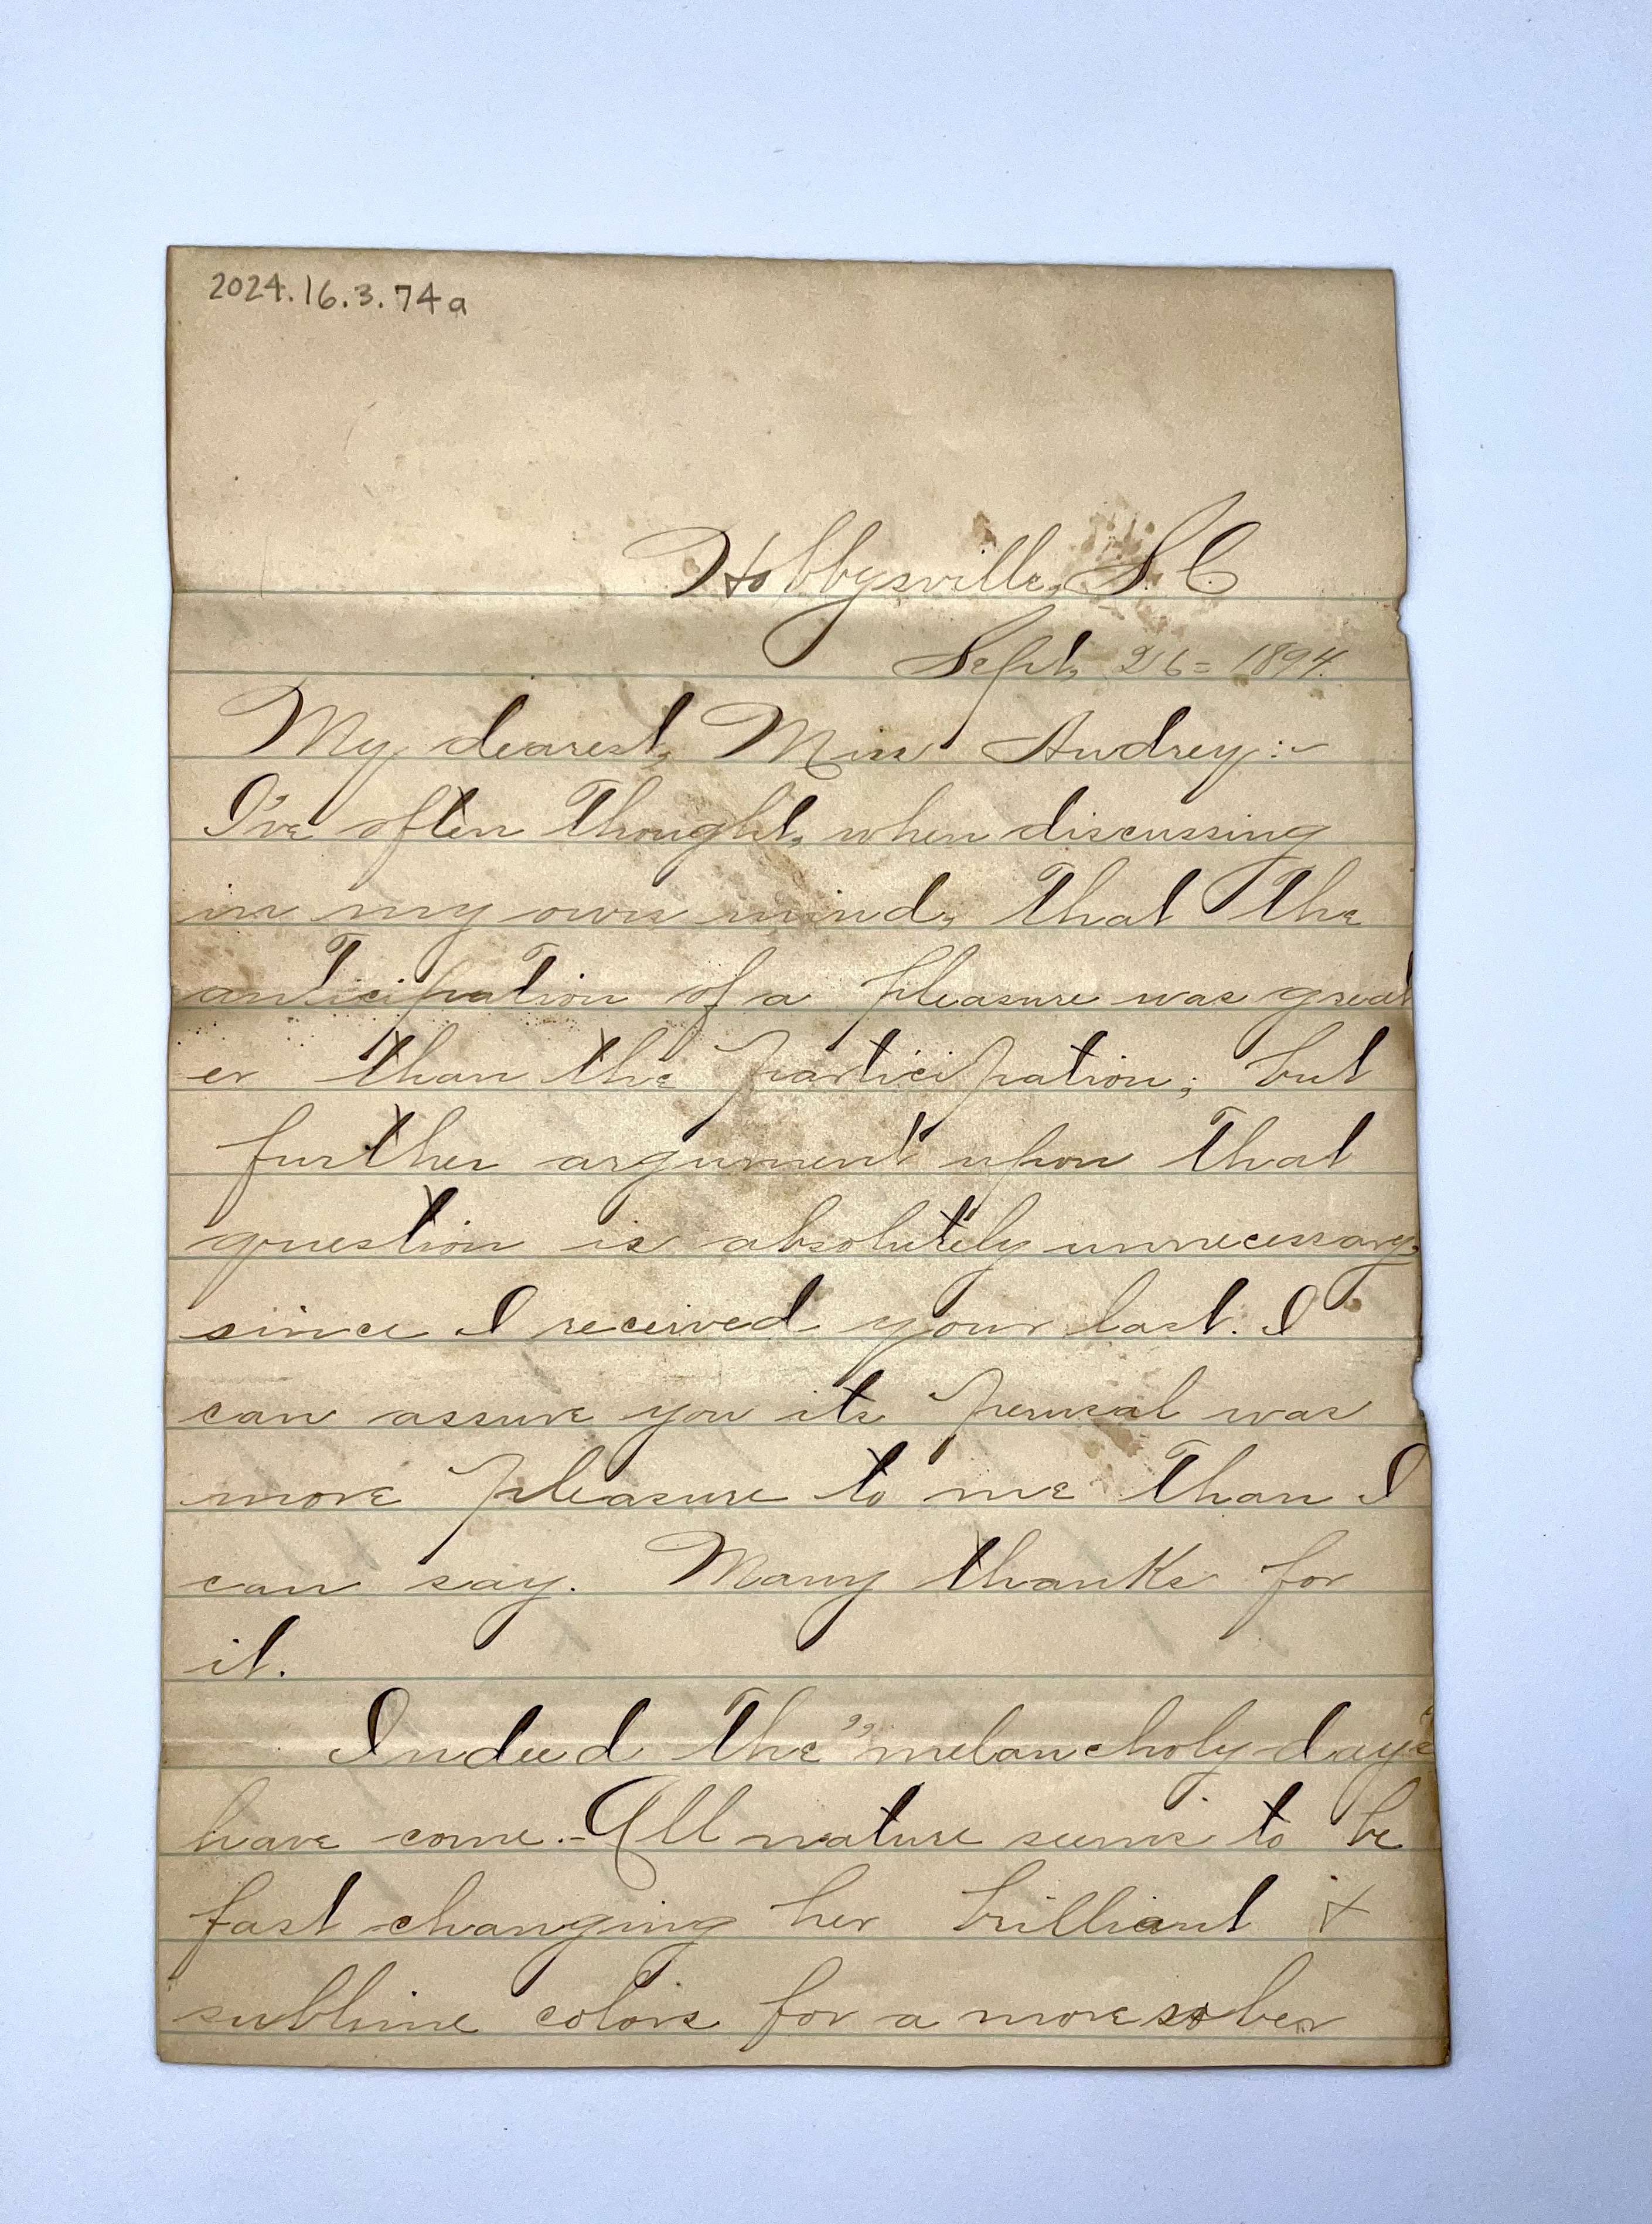 2024.16.3.74a
Hobbysville, S.C.
Sept, 26= 1894.
My dearest, Miss Audrey:-
I've often thought, when discussing
in my own mind, that the
anticipation of a pleasure was great
er than the participation; but
further argument upon that
question is absolutely unnecessary,
since I received your last. I
can assure you its perusal was
more pleasure to me than I
can say. Many thanks for
it.
Indeed the "melancholy days"
have come.- All nature seems to be
fast changing her brilliant &
sublime colors for a more sober